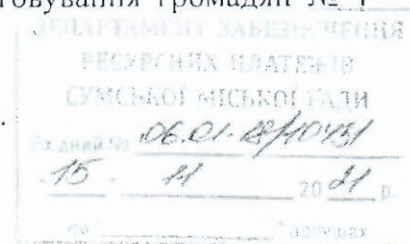 товування громадян № 1
ДЕПАРТАМЕНТ ЗАБЕЗПЕЧЕННЯ
РЕСУРСНИХ ПЛАТЕЖІВ
СУМСЬКОЇ МІСЬКОЇ РАДИ
Вхідний № 06.01-18/10451
"15" 11 2021 р.
на " " аркушах